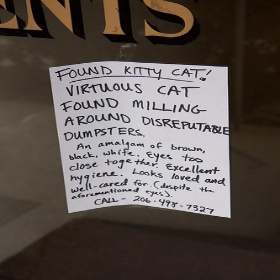 ENTS
FOUND KITTY CAT!
VIRTUOUS CAT
FOUND MILLING
AROUND DISREPUTABLE
DUMPSTERS.
An amalgam of brown,
black, white. Eyes too
close together. Excellent
hygiene. Looks loved and
well-cared for (despite the
aforementioned eyes).
CALL - 206-498-7327